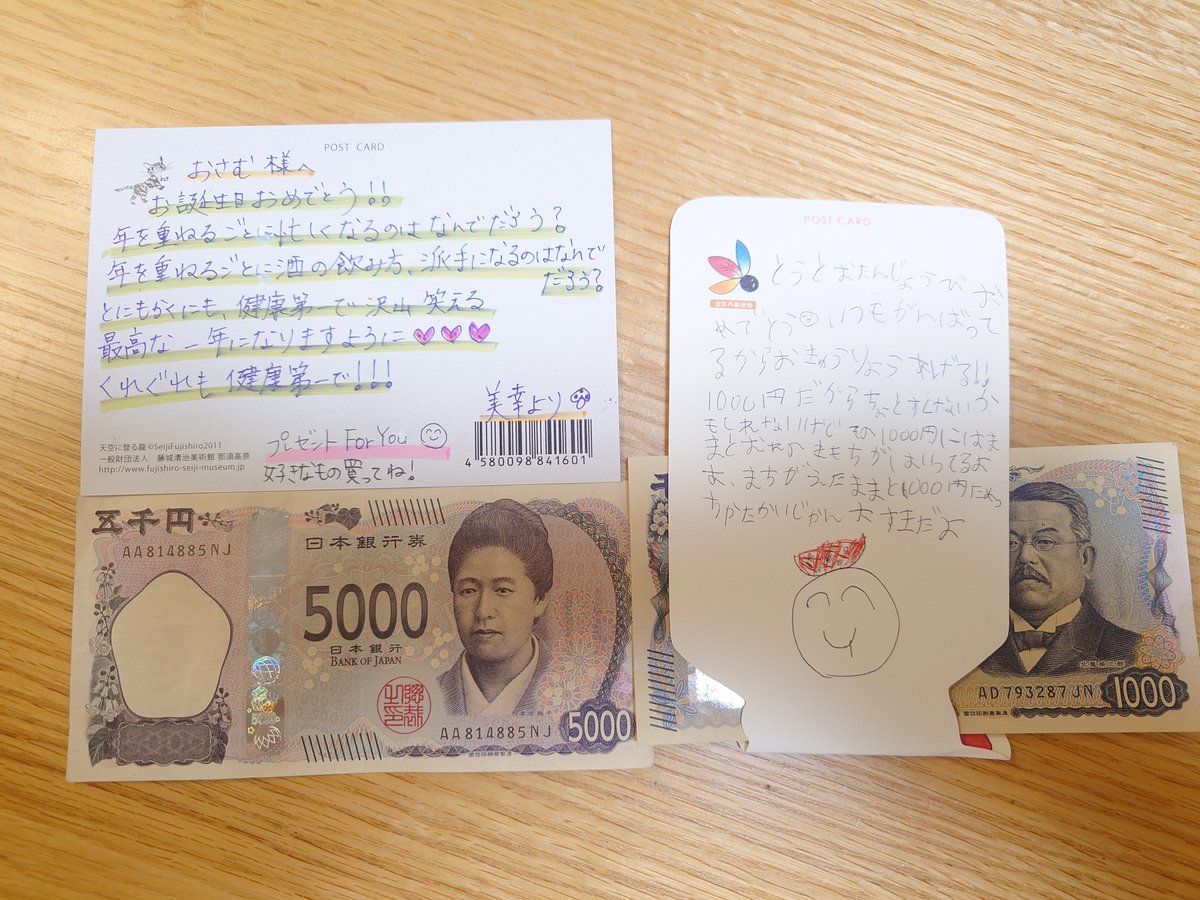 POST CARD
おさむ 様へ
お誕生日おめでとう!!
年を重ねるごとに忙しくなるのはなんでだろう?
年を重ねるごとに酒の飲み方、派手になるのはなんで
だろう?
とにもかくにも、健康第一で沢山 笑える
最高な 一年になりますように
くれぐれも 健康第一で!!!
美幸より
プレゼント For You
好きなもの買ってね!
天空に登る龍 ©SeijiFujishiro2011
一般財団法人 藤城清治美術館 那須高原
http://www.fujishiro-seiji-museum.jp
4 580098 841601
POST CARD
定形外郵便物
とうとおたんじょうびお
めでとう いつもがんばって
るからおきゅうりょうあげる!!
1000円だからちょとすくないか
もしれないけど その1000円にはま
まとおれの きもちがはいってるよ
お、まちがえたままと1000円ためっ
ちかたがいじかん 大すきだよ
五千円
AA814885NJ
日本銀行券
5000
日本銀行
BANK OF JAPAN
AA814885NJ
5000
国立印刷局製造
北里柴三郎
AD793287JN
1000
国立印刷局製造